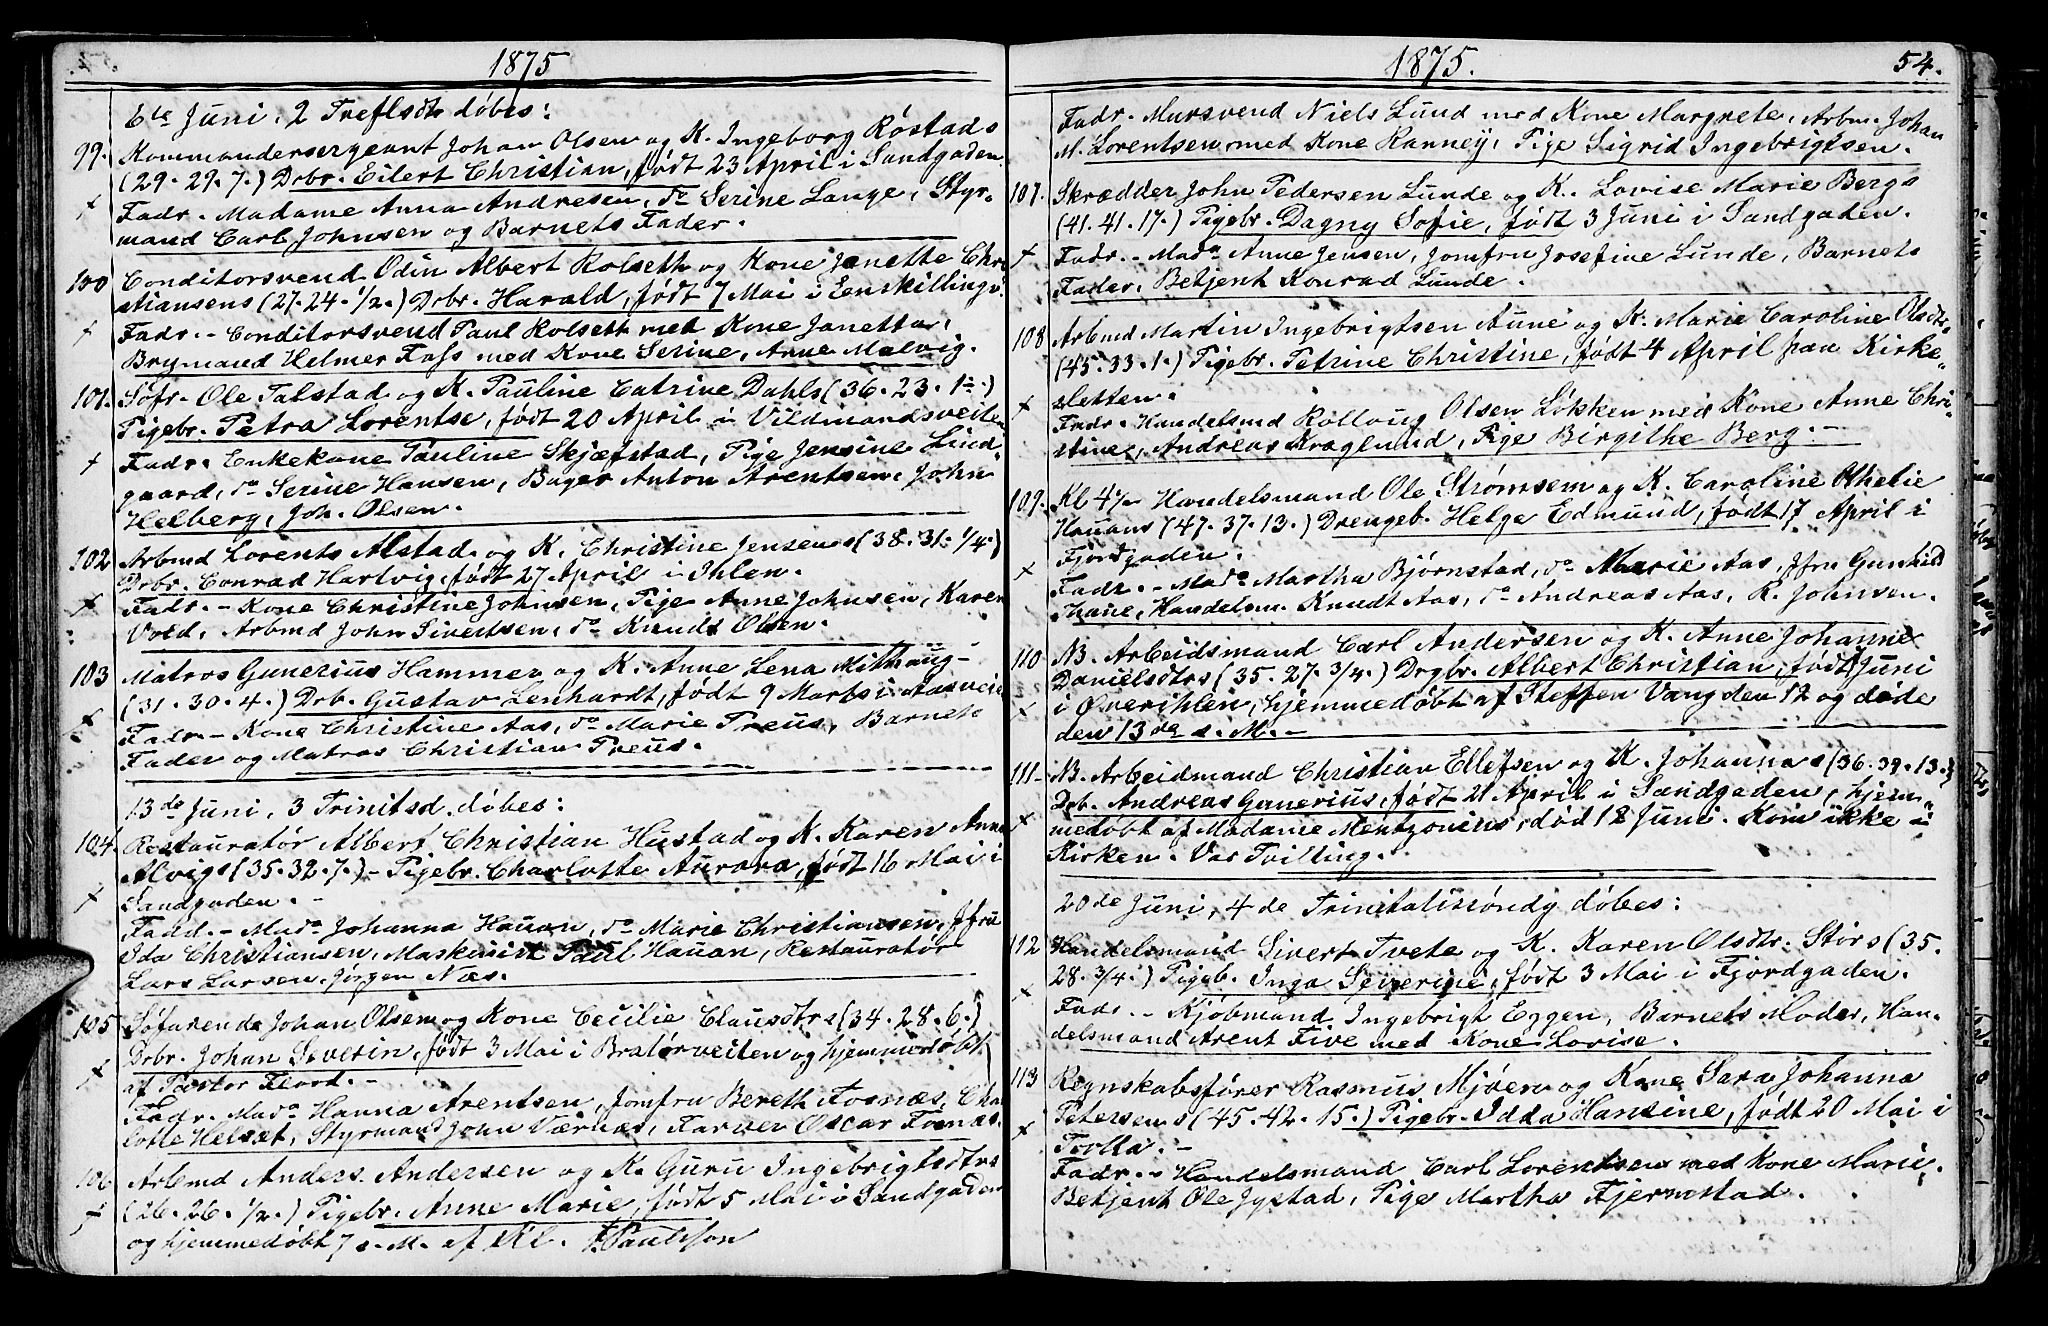 1875
6te Juni, 2 Treflsdt døbes:
99. Kommandersergeant Johan Olsen og K. Ingeborg Røstads
(29. 29. 7.) Drbr. Eilert Christian, født 23 April i Sandgaden.
Fadr. Madame Anna Andresen, do Serine Lange, Styr-
mand Carl Johnsen og Barnets Fader.
100 Conditorsvend Odin Albert Rolseth og Kone Janette Chri
stiansens (27. 24. 1/2.) Drbr. Harald, født 7 Mai i Enskillingsv.
Fadr. - Conditorsvend Paul Rolseth med Kone Janetta,
Brymand Helmer Fass med Kone Serine, Anne Malvig.
101. Søfr. Ole Talstad og K. Pauline Catrine Dahls (36. 23. 1 1/2.)
Pigebr. Petra Lorentse, født 20 April i Vildmandsveiten
Fadr. Enkekone Pauline Skjæfstad, Pige Jensine Lind-
gaard, do Serine Hansen, Bager Anton Arentsen, John
Helberg, Joh. Olsen.
102 Arbmd Lorents Alstad og K. Christine Jensens (38. 31. 1/4.)
Drbr. Conrad Hartvig, født 27 April i Ihlen.
Fadr. - Kone Christine Johnsen, Pige Anne Johnsen, Karen
Vold, Arbmd John Sivertsen, do Knudt Olsen.
103 Matros Gunerius Hammer og K. Anne Lena Mithaug-
(31. 30. 4.) Drb. Gustav Lenhardt, født 9 Marts i Aasveien
Fadr. - Kone Christine Aas, do Marie Preus, Barnets
Fader og Matros Christian Preus.
13de Juni, 3 Trinitsd. døbes:
104. Restauratør Albert Christian Hustad og K. Karen Anna
Alvigs (35. 32. 7.) - Pigebr. Charlotte Aurora, født 16 Mai i
Sandgaden. -
Fadd. - Mada Johanna Hauan, do Marie Christiansen, Jfru
Ida Christiansen, Maskinist Paul Hauan, Restauratør
Lars Larsen, Jørgen Næs.
105 Søfarende Johan Olsen og Kone Cecilie Clausdtrs (34. 28. 6.)
Drbr. Johan Severin, født 3 Mai i Bratørveiten og hjemmedøbt
af Pastor Flood. -
Fadr. Mada Hanna Arentsen, Jomfru Bereth Fosnæs, Char
lotte Helset, Styrmand John Værnæs, Farver Oscar Fosnæs.
106 Arbmd Anders Andersen og K. Guru Ingebrigtsdtrs
(26. 26. 1/2.) Pigebr. Anne Marie, født 5 Mai i Sandgaden
og hjemmedøbt 7 s. M. af Kl. Paulsson
1875. 54.
Fadr. Mursvend Niels Lund med Kone Margrete, Arbm. Johan
M. Lorentsen med Kone Ranney, Pige Sigrid Ingebrigtsen.
107. Skrædder John Pedersen Lunde og K. Lovise Marie Bergs
(41. 41. 17.) Pigebr. Dagny Sofie, født 3 Juni i Sandgaden.
Fadr. - Mada Anne Jensen, Jomfru Josefine Lunde, Barnets
Fader, Betjent Konrad Lunde.
108 Arbmd Martin Ingebrigtsen Aune og K. Marie Caroline Olsdtrs
(45. 33. 1.) Pigebr. Petrine Christine, født 4 April paa Kirke-
sletten.
Fadr. Handelsmd Olsen Løkken med Kone Anne Chri-
stine, Andreas Kraglund, Pige Birgithe Berg. -
109. Kl 4 1/2 Handelsmand Ole Strømsem og K. Caroline Othelie
Hauans (47. 37. 13.) Drengeb. Helge Edmund, født 17 April i
Fjordgaden.
Fadr. - Mada Martha Bjørnstad, do Marie Aas, Jfru Gunhild
Thane, Handelsm. Knudt Aas, do Andreas Aas, R. Johnsen.
110 NB. Arbeidsmand Carl Andersen og K. Anne Johanne
Danielsdtrs (35. 27. 3/4.) Drgbr. Albert Christian, født Juni
i Øverihlen, hjemmedøbt af Steffen Vang den 12 og døde
den 13de s. M. -
111 NB. Arbeidmand Christian Ellefsen og K. Johannas (36. 39. 13.)
Drb. Andreas Gunerius, født 21 April i Sandgaden, hjem-
medøbt af Madame Mentzonius, død 18 Juni. Kom ikke i
Kirken. Var Tvilling.
20de Juni, 4de Trinitatissøndg døbes:
112 Handelsmand Sivert Tvete og K. Karen Olsdtr. Størs (35.
28. 3/4.) Pigeb. Inga Severine, født 3 Mai i Fjordgaden.
Fadr. - Kjøbmand Ingebrigt Eggen, Barnets Moder, Han-
delsmand Arent Five med Kone Lovise.
113 Regnskabsfører Rasmus Mjøen og Kone Sara Johanna
Petersens (45. 42. 15.) Pigebr. Idda Hansine, født 20 Mai i
Trolla. -
Fadr. - Handelsmand Carl Lorentsen med Kone Marie,
Betjent Ole Jystad, Pige Martha Fjernestad.